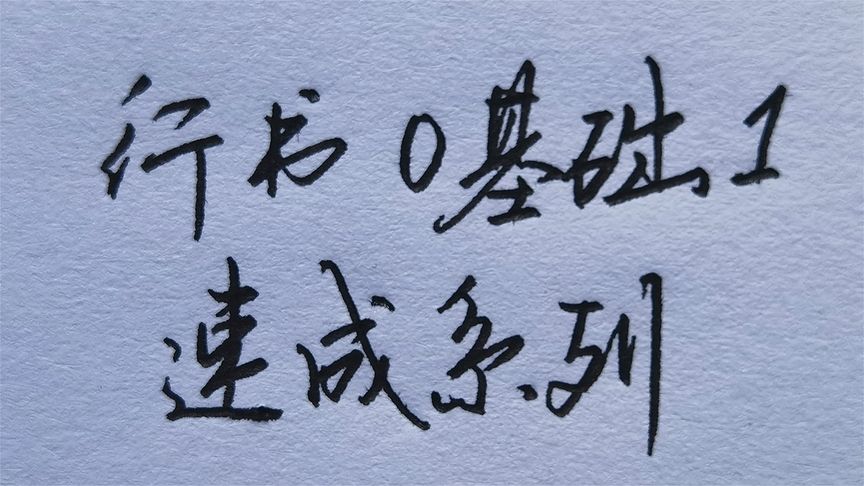 行书 0基础1
速成系列